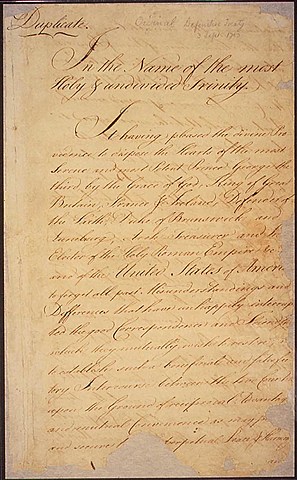 Duplicate.
Original Definitive Treaty
3 Sept. 1783
In the Name of the most
Holy & undivided Trinity.
It having pleased the divine Pro
vidence to dispose the Hearts of the most
Serene and most Potent Prince George the
third, by the Grace of God, King of Great
Britain, France & Ireland, Defender of
the Faith, Duke of Brunswick and
Luneburg, Arch Treasurer and
Elector of the Holy Roman Empire &c.
and of the United States of America
to forget all past Misunderstandings and
Differences that have unhappily interrup
ted the good Correspondence and Friendship
which they mutually wish to restore;
to establish such a beneficial and satisfac
tory Intercourse between the two Countries
upon the Ground of reciprocal Advantages
and mutual Convenience as may
and secure perpetual Peace & Harmony